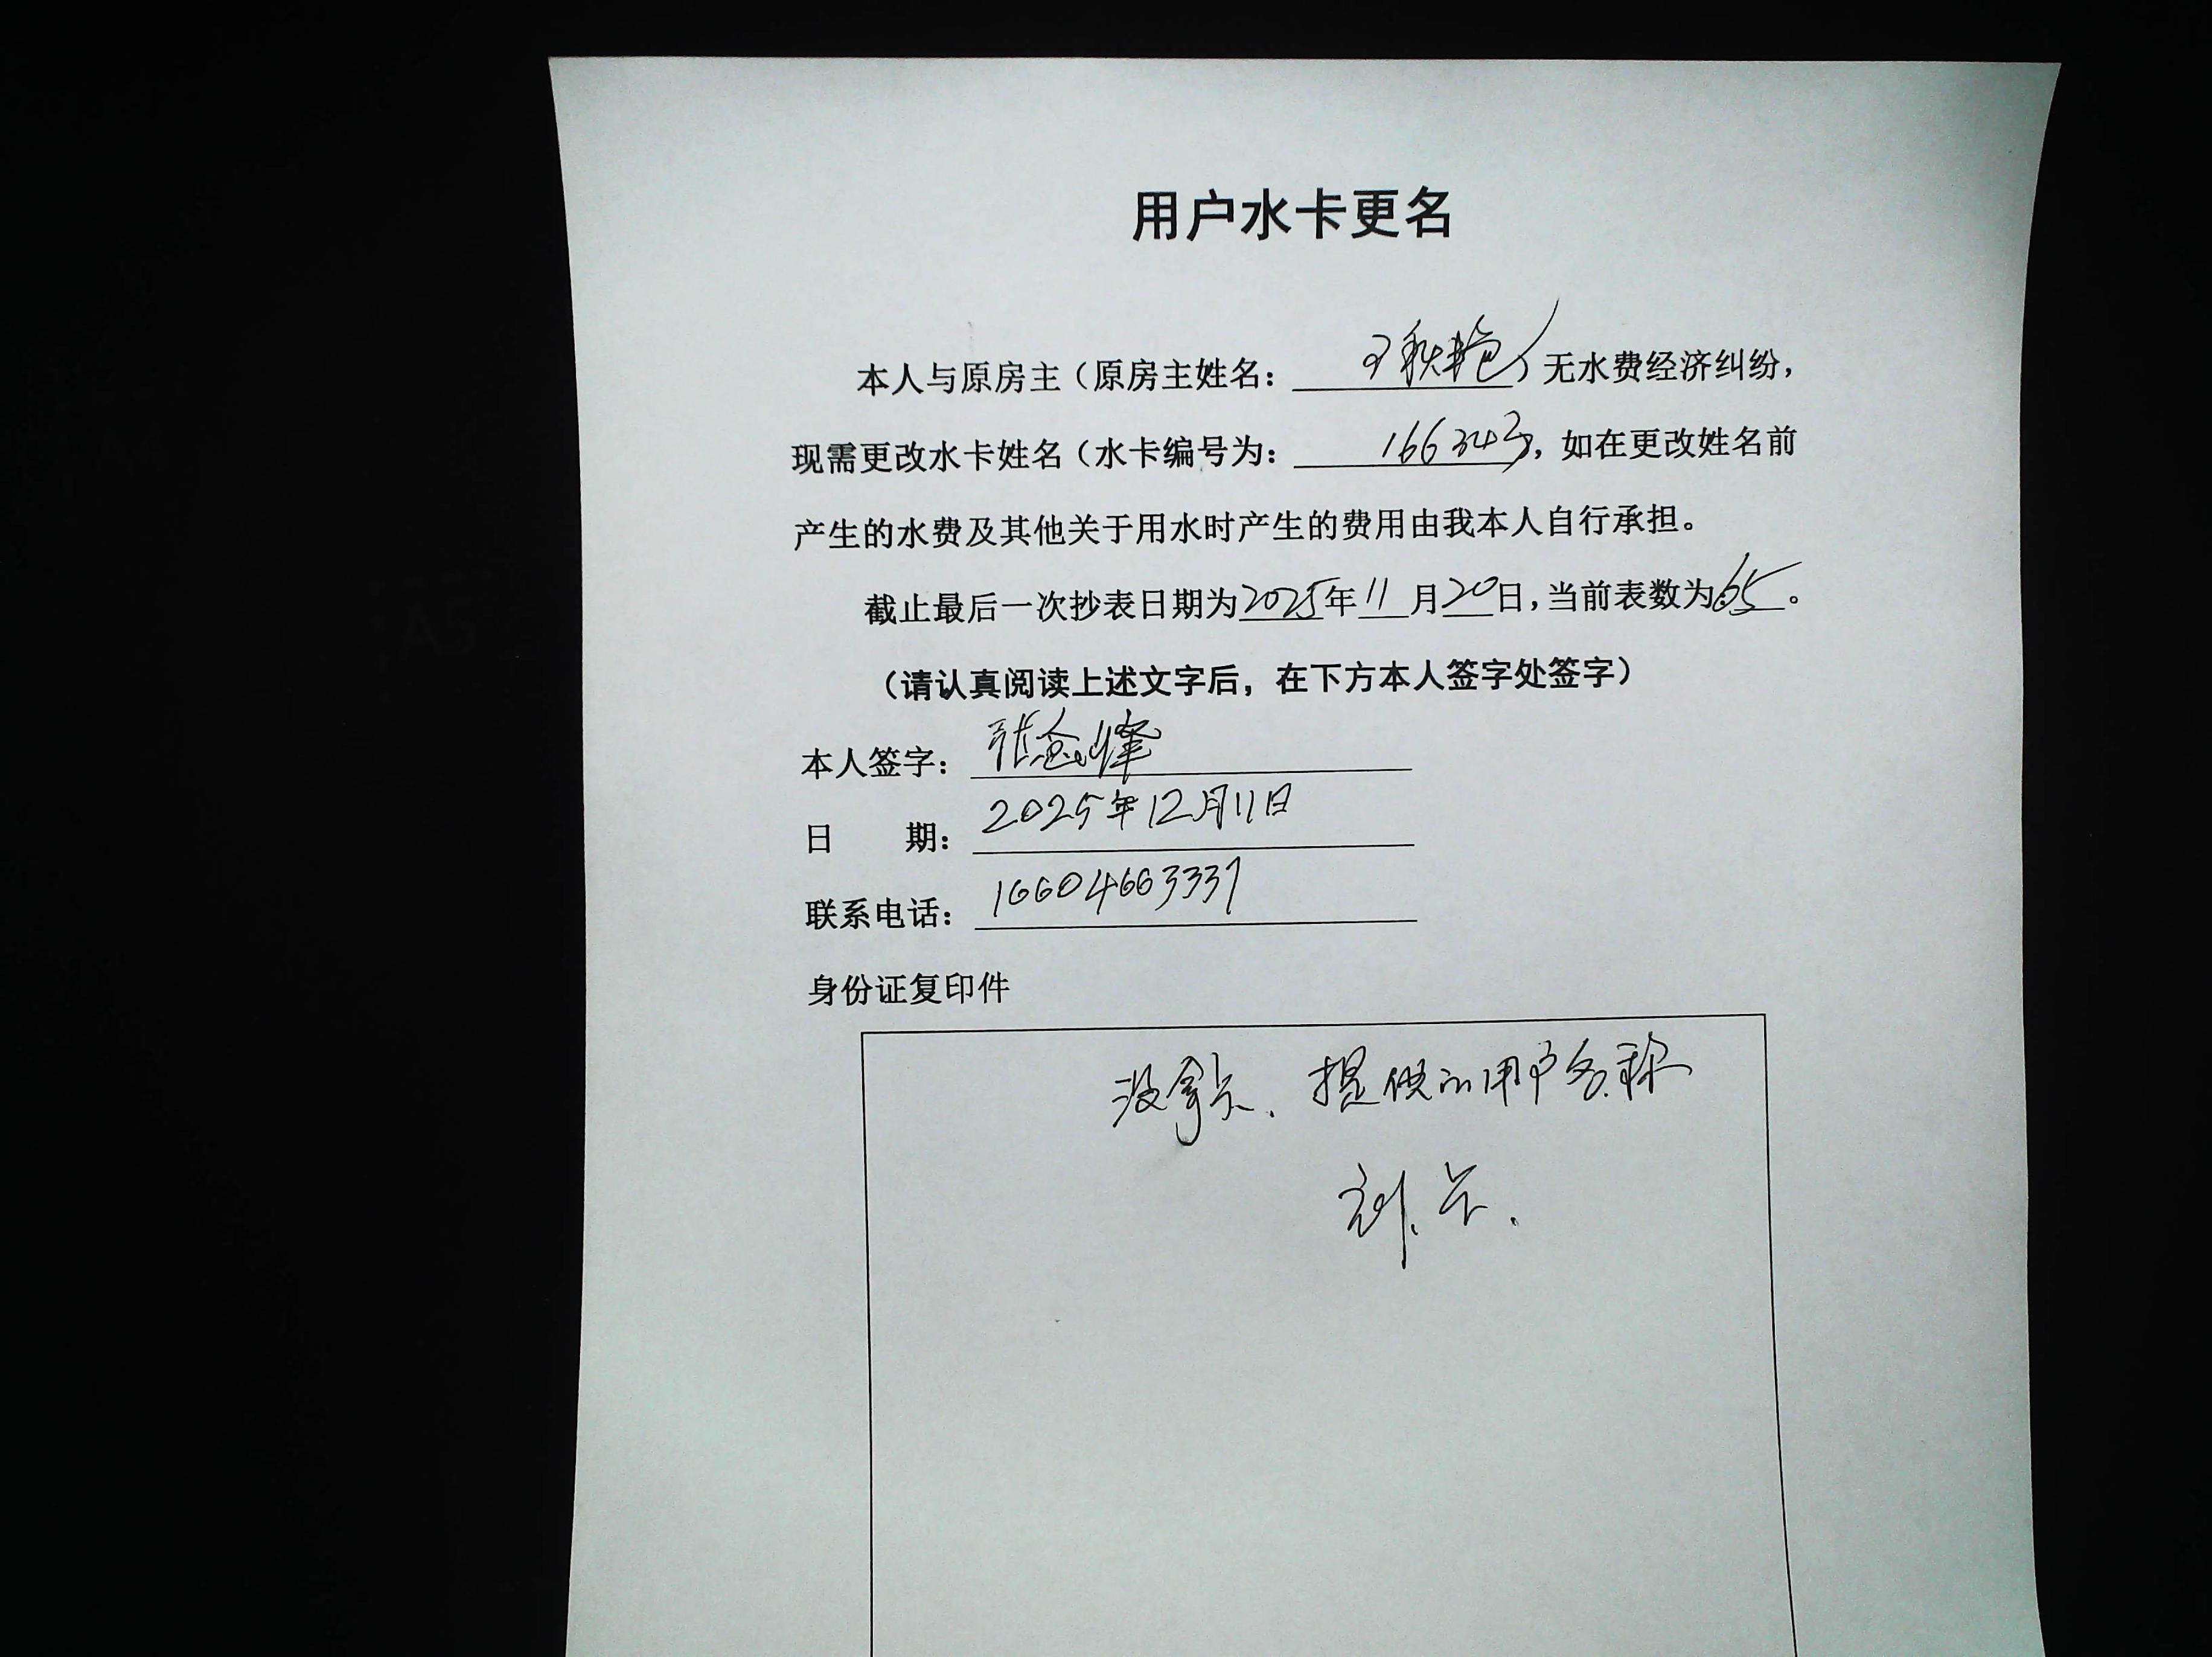 用户水卡更名
本人与原房主（原房主姓名：秋艳）无水费经济纠纷，
现需更改水卡姓名（水卡编号为：16634号，如在更改姓名前
产生的水费及其他关于用水时产生的费用由我本人自行承担。
截止最后一次抄表日期为2025年11月20日，当前表数为：65。
（请认真阅读上述文字后，在下方本人签字处签字）
本人签字：张金峰
日 期：2025年12月11日
联系电话：16604663337
身份证复印件
没拿卡、提供的用户名称
刘、卡.
A5